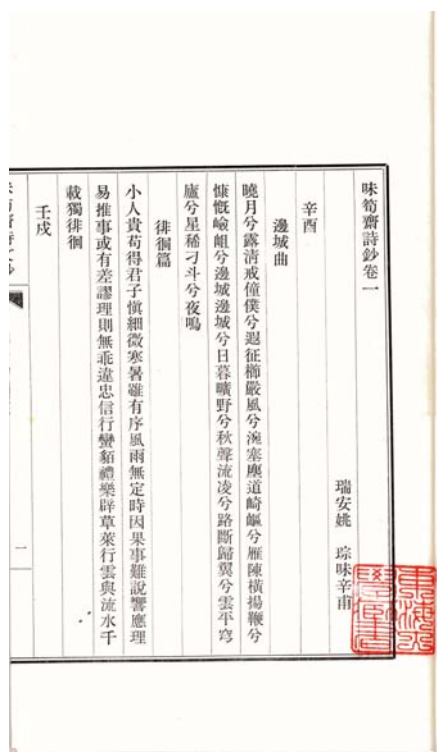 味筍齋詩鈔卷一
瑞安姚 琮味辛甫
辛酉
邊城曲
曉月兮露清戒僮僕兮遐征櫛嚴風兮涴塞塵道崎嶇兮雁陳橫揚鞭兮
慷慨嶮岨兮邊城邊城兮日暮曠野兮秋聲流凌兮路斷歸翼兮雲平穹
廬兮星稀刁斗兮夜鳴
徘徊篇
小人貴苟得君子慎細微寒暑雖有序風雨無定時因果事難說響應理
易推事或有差謬理則無乖違忠信行蠻貊禮樂辟草萊行雲與流水千
載獨徘徊
壬戌
一